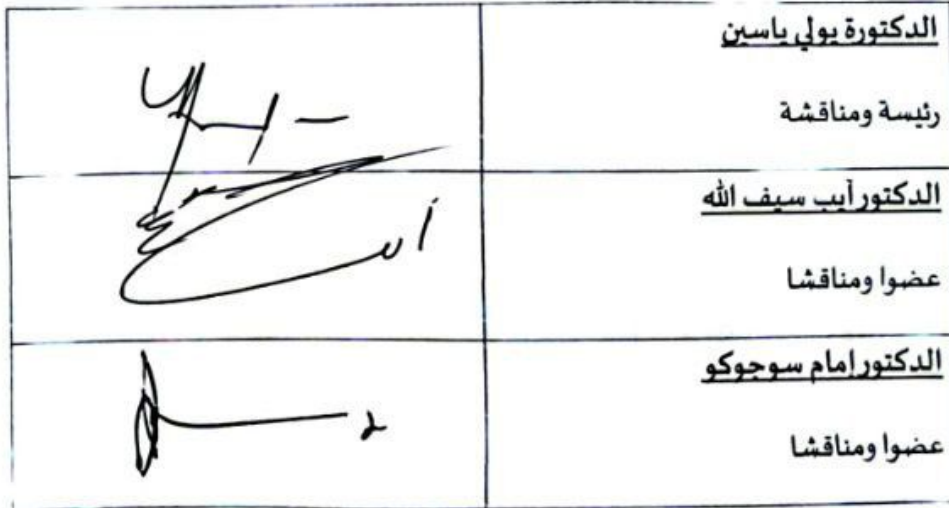 الدكتورة يولي ياسين
رئيسة ومناقشة
الدكتور أيب سيف الله
عضوا ومناقشا
الدكتور إمام سوجوكو
عضوا ومناقشا